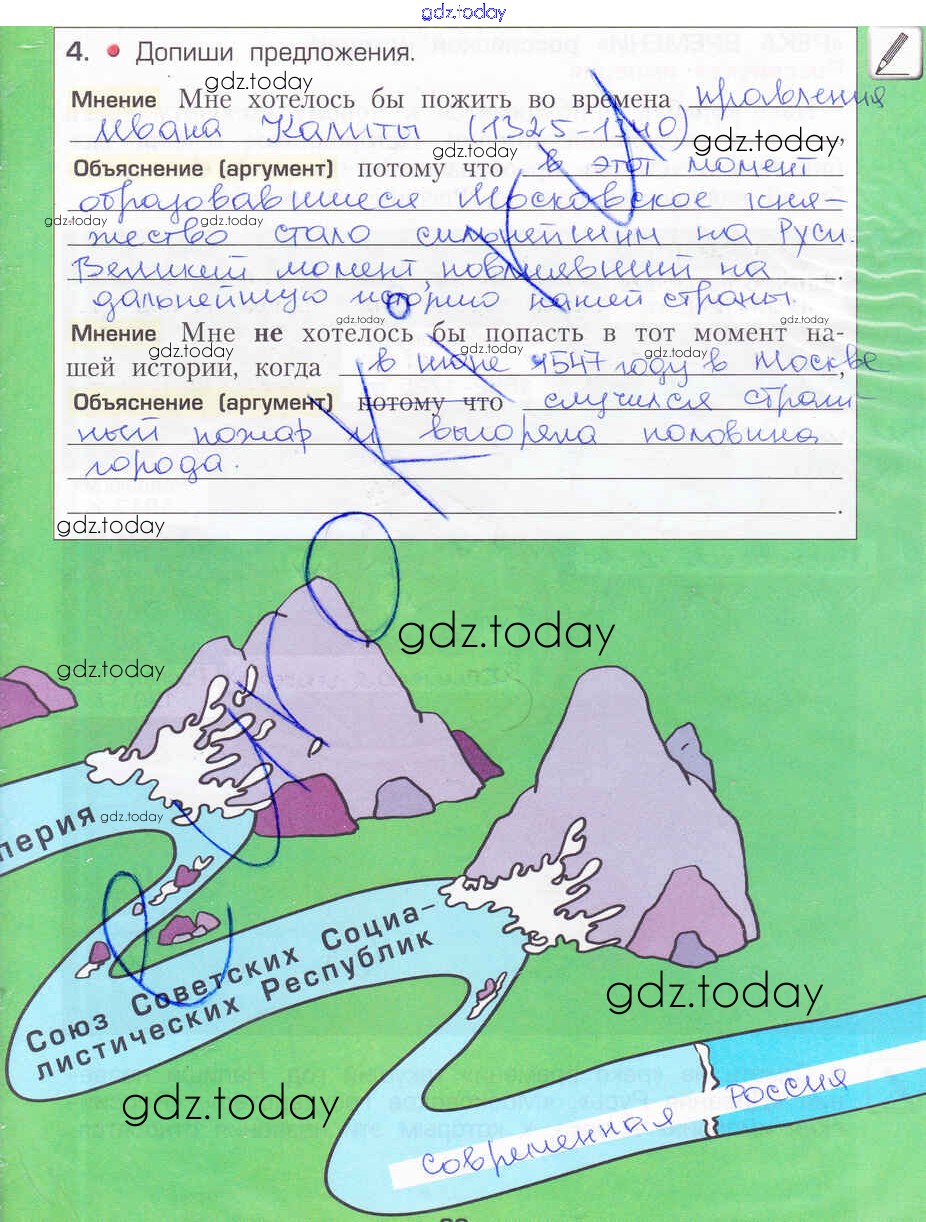 gdz.today
4. • Допиши предложения.
gdz.today
Мнение Мне хотелось бы пожить во времена правления
Ивана Калиты (1325-1340),
gdz.today gdz.today
Объяснение (аргумент) потому что в этот момент
образовавшиеся Московское кня-
gdz.today gdz.today gdz.today
жество стало сильнейшим на Руси.
Великий момент, повлиявший на .
дальнейшую историю нашей страны.
gdz.today gdz.today
Мнение Мне не хотелось бы попасть в тот момент на-
gdz.today gdz.today gdz.today
шей истории, когда в июне 1547 году в Москве,
Объяснение (аргумент) потому что случился страш-
ный пожар и выгорела половина
города.
.
gdz.today
gdz.today
gdz.today
перия
gdz.today
gdz.today
Союз Советских Социа-
листических Республик
gdz.today
gdz.today
современная Россия